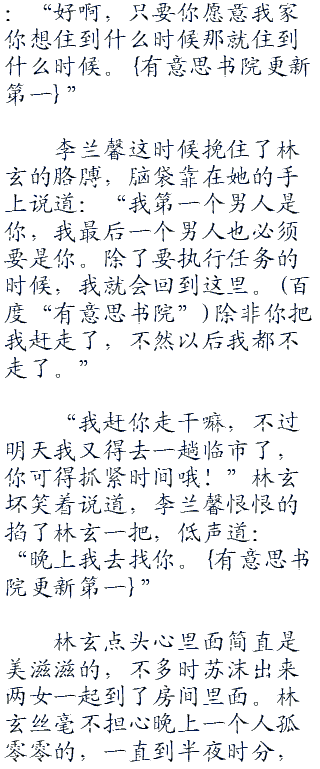 ：“好啊，只要你愿意我家
你想住到什么时候那就住到
什么时候。{有意思书院更新
第一}”
李兰馨这时候挽住了林
玄的胳膊，脑袋靠在她的手
上说道：“我第一个男人是
你，我最后一个男人也必须
要是你。除了要执行任务的
时候，我就会回到这里。(百
度“有意思书院”)除非你把
我赶走了，不然以后我都不
走了。”
“我赶你走干嘛，不过
明天我又得去一趟临市了，
你可得抓紧时间哦！”林玄
坏笑着说道，李兰馨恨恨的
掐了林玄一把，低声道：
“晚上我去找你。{有意思书
院更新第一}”
林玄点头心里面简直是
美滋滋的，不多时苏沫出来
两女一起到了房间里面。林
玄丝毫不担心晚上一个人孤
零零的，一直到半夜时分，